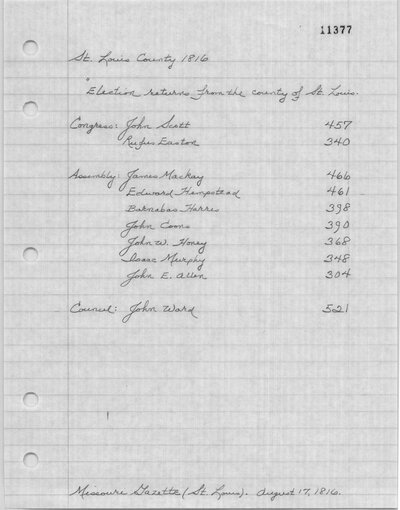 11377
St. Louis County 1816
"
Election returns from the county of St. Louis.
Congress: John Scott 457
Rufus Easton 340
Assembly: James Mackay 466
Edward Hempstead 461
Barnabas Harris 398
John Coons 390
John W. Honey 368
Isaac Murphy 348
John E. Allen 304
Council: John Ward 521
Missouri Gazette (St. Louis). August 17, 1816.